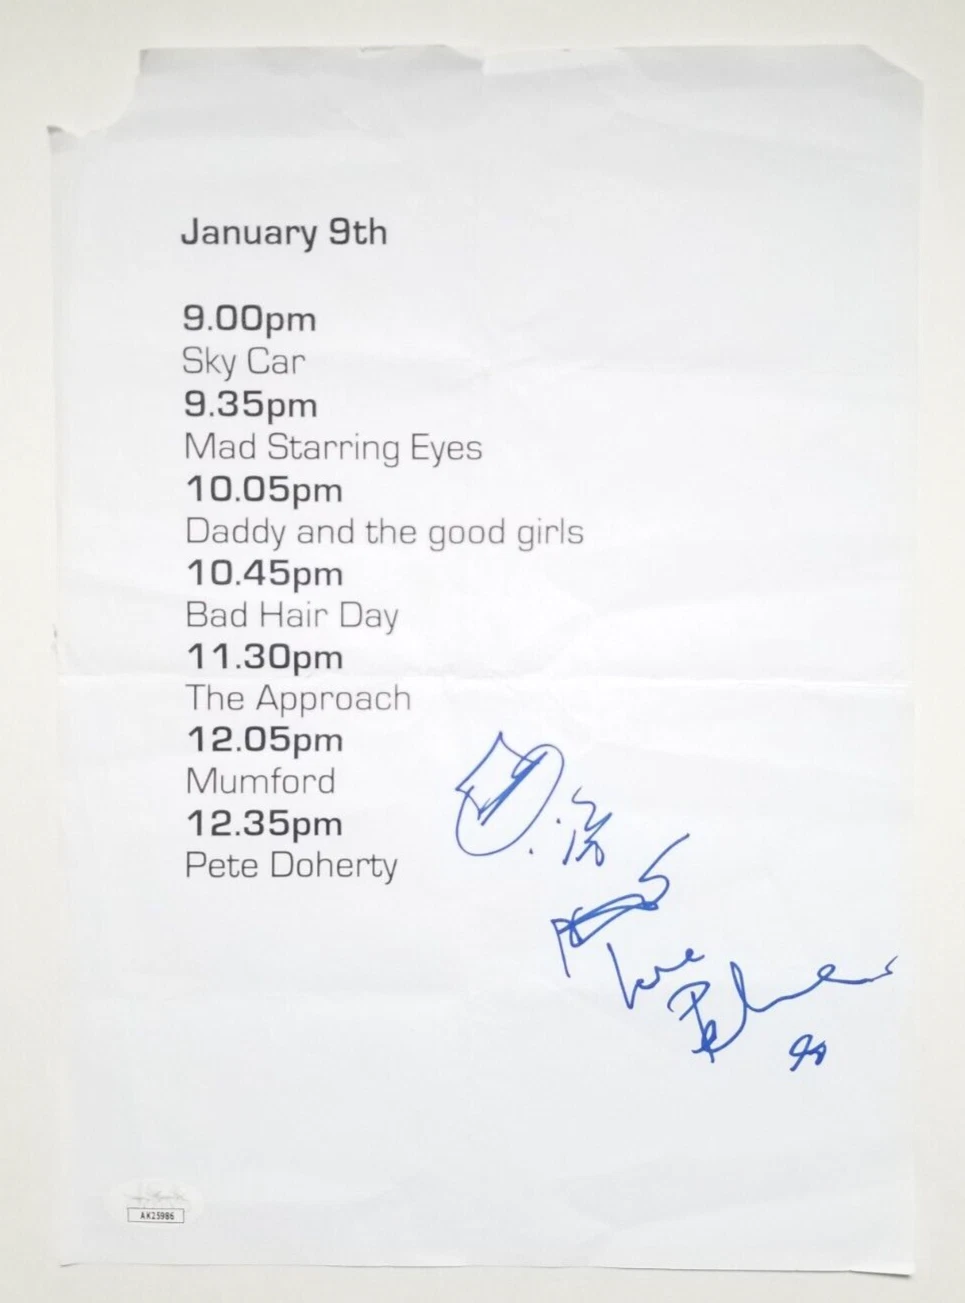 January 9th
9.00pm
Sky Car
9.35pm
Mad Starring Eyes
10.05pm
Daddy and the good girls
10.45pm
Bad Hair Day
11.30pm
The Approach
12.05pm
Mumford
12.35pm
Pete Doherty
love
AK25986